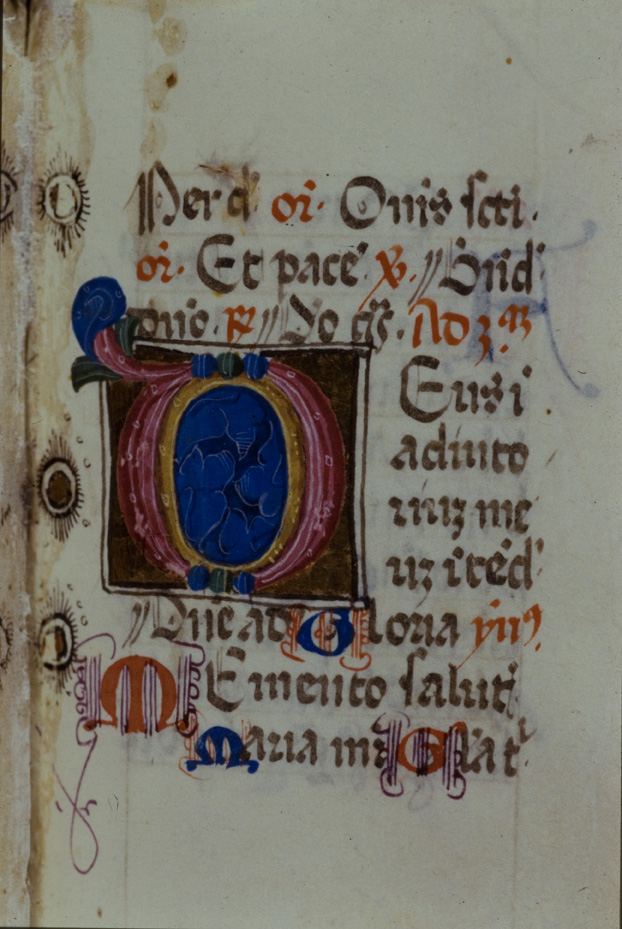 Per d. or. Om̄s sc̄ti.
or. Et pacē. v. Bn̄d
dn̄o. R Do gr̄s. Ad 3.am
Deus i
adiuto
riuȝ me
uȝ ītēd
Dn̄e ad Gloria ymus
Memento saluti
Maria mr̄ Gl'a t